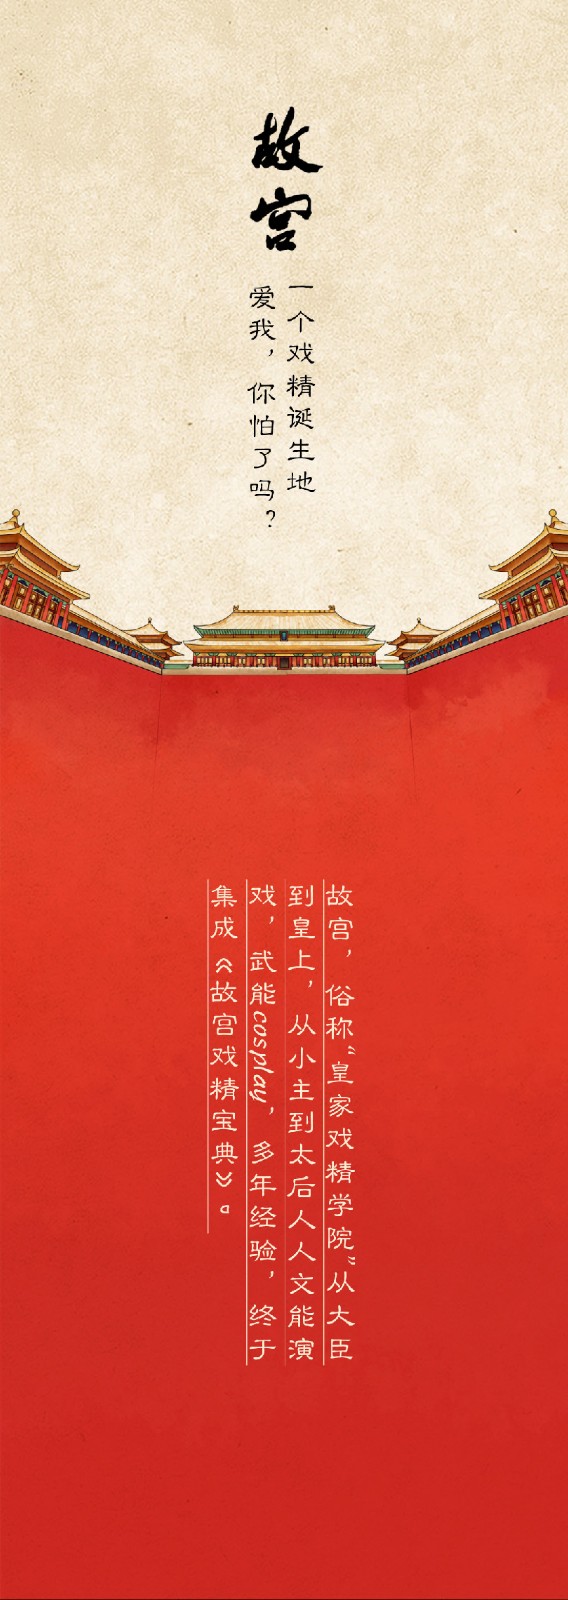 故宫
一个戏精诞生地
爱我，你怕了吗？
故宫，俗称“皇家戏精学院”从大臣
到皇上，从小主到太后人人文能演
戏，武能cosplay，多年经验，终于
集成《故宫戏精宝典》。